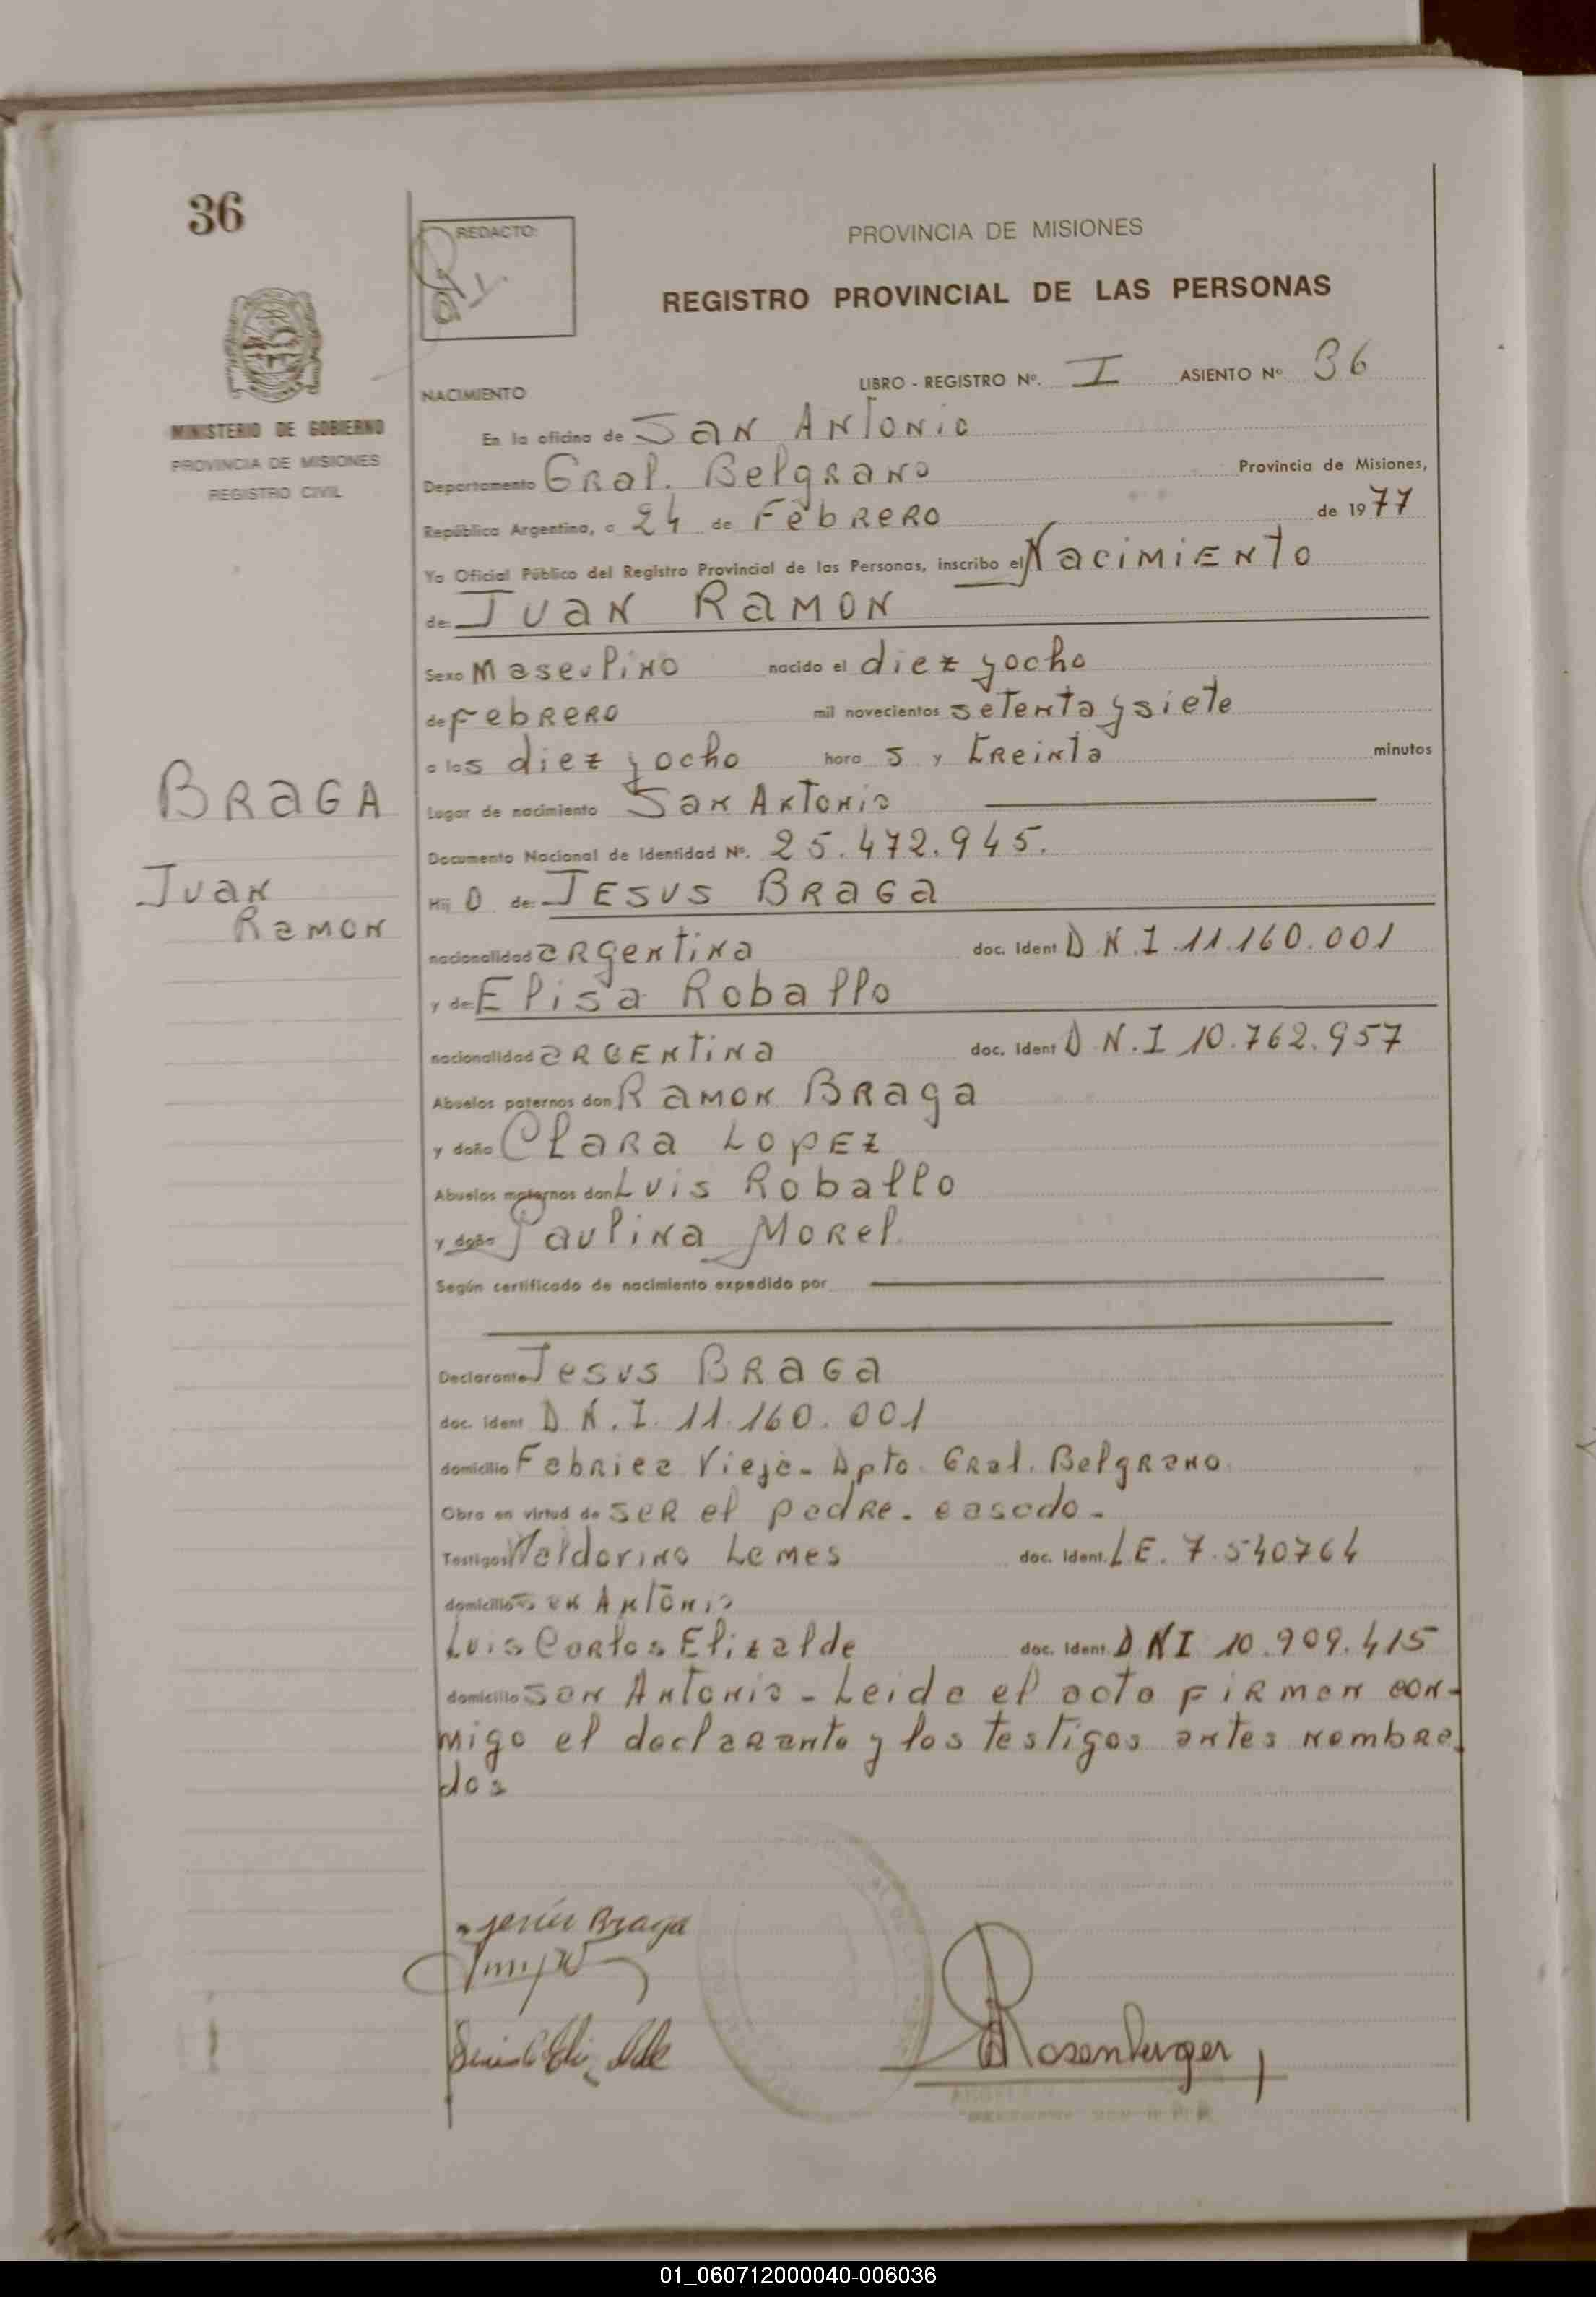 36
REDACTO:
PROVINCIA DE MISIONES
REGISTRO PROVINCIAL DE LAS PERSONAS
MINISTERIO DE GOBIERNO
PROVINCIA DE MISIONES
REGISTRO CIVIL
NACIMIENTO
LIBRO - REGISTRO Nº. I ASIENTO Nº 36
En la oficina de SAN ANTONIO
Departamento GRal. BelgRANO Provincia de Misiones,
República Argentina, a 24 de FebRERO de 1977
Yo Oficial Público del Registro Provincial de las Personas, inscribo el NaciMiENTO
de: JUAN RaMON
Sexo Masculino nacido el diez y ocho
de FebRERO mil novecientos setenta y siete
a las diez y ocho hora s y tReinta minutos
BRAGA
Lugar de nacimiento San Antonio
Documento Nacional de Identidad Nº. 25.472.945.
Juan
RaMON
Hij O de: JESUS BRAGA
nacionalidad aRgentina doc. Ident D.N.I. 11.160.001
y de: Elisa Roballo
nacionalidad aRGENTiNa doc. Ident D.N.I 10.762.957
Abuelos paternos don RaMON BRaga
y doña ClaRa LOPEZ
Abuelos maternos don Luis Roballo
y doña Paulina MoRel
Según certificado de nacimiento expedido por
Declarante Jesus BRAGA
doc. ident D.N.I. 11.160.001
domicilio FabRica Vieja - Dpto. GRal. BelgRano.
Obra en virtud de seR el padRe. casado -
Testigos Waldorino Lemes doc. Ident. L E. 7.540764
domicilio San Antonio
Luis CaRlos Elizalde doc. Ident. D N I 10.909.415
domicilio San Antonio - Leida el acta FiRman con-
migo el declaRante y los testigos antes nombRa
dos
Jesús Braga
Rosenberger
01_060712000040-006036